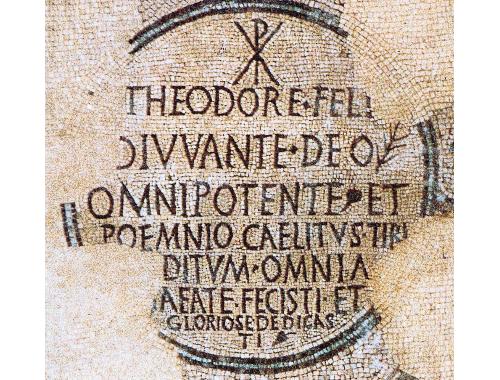 THEODORE·FELI
DIVVANTE·DEO
OMNIPOTENTE·ET
POEMNIO CAELITVS TIBI
DITVM·OMNIA
AEATE FECISTI·ET
GLORIOSE DEDICAS
TI